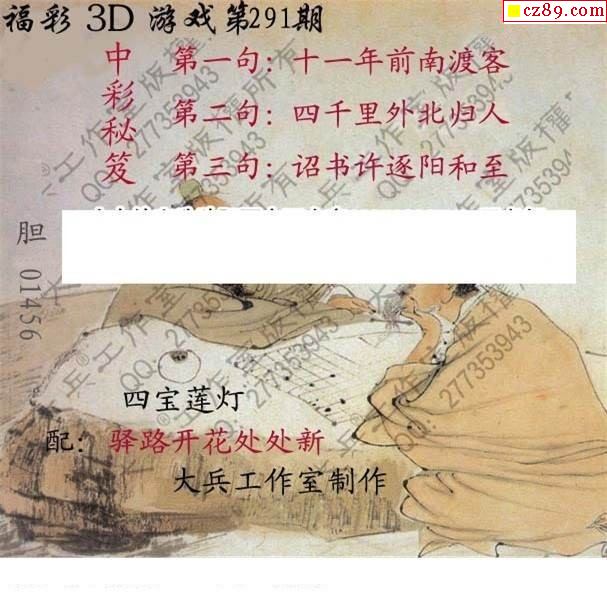 福彩 3D 游戏第291期
cz89.com
中彩秘笈
第一句：十一年前南渡客
第二句：四千里外北归人
第三句：诏书许逐阳和至
胆 01456
四宝莲灯
配：驿路开花处处新
大兵工作室制作
大兵®工作室版權所有
QQ：277353943